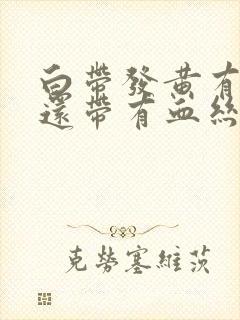 白帶發黃有
還帶有血絲
克勞塞維茨